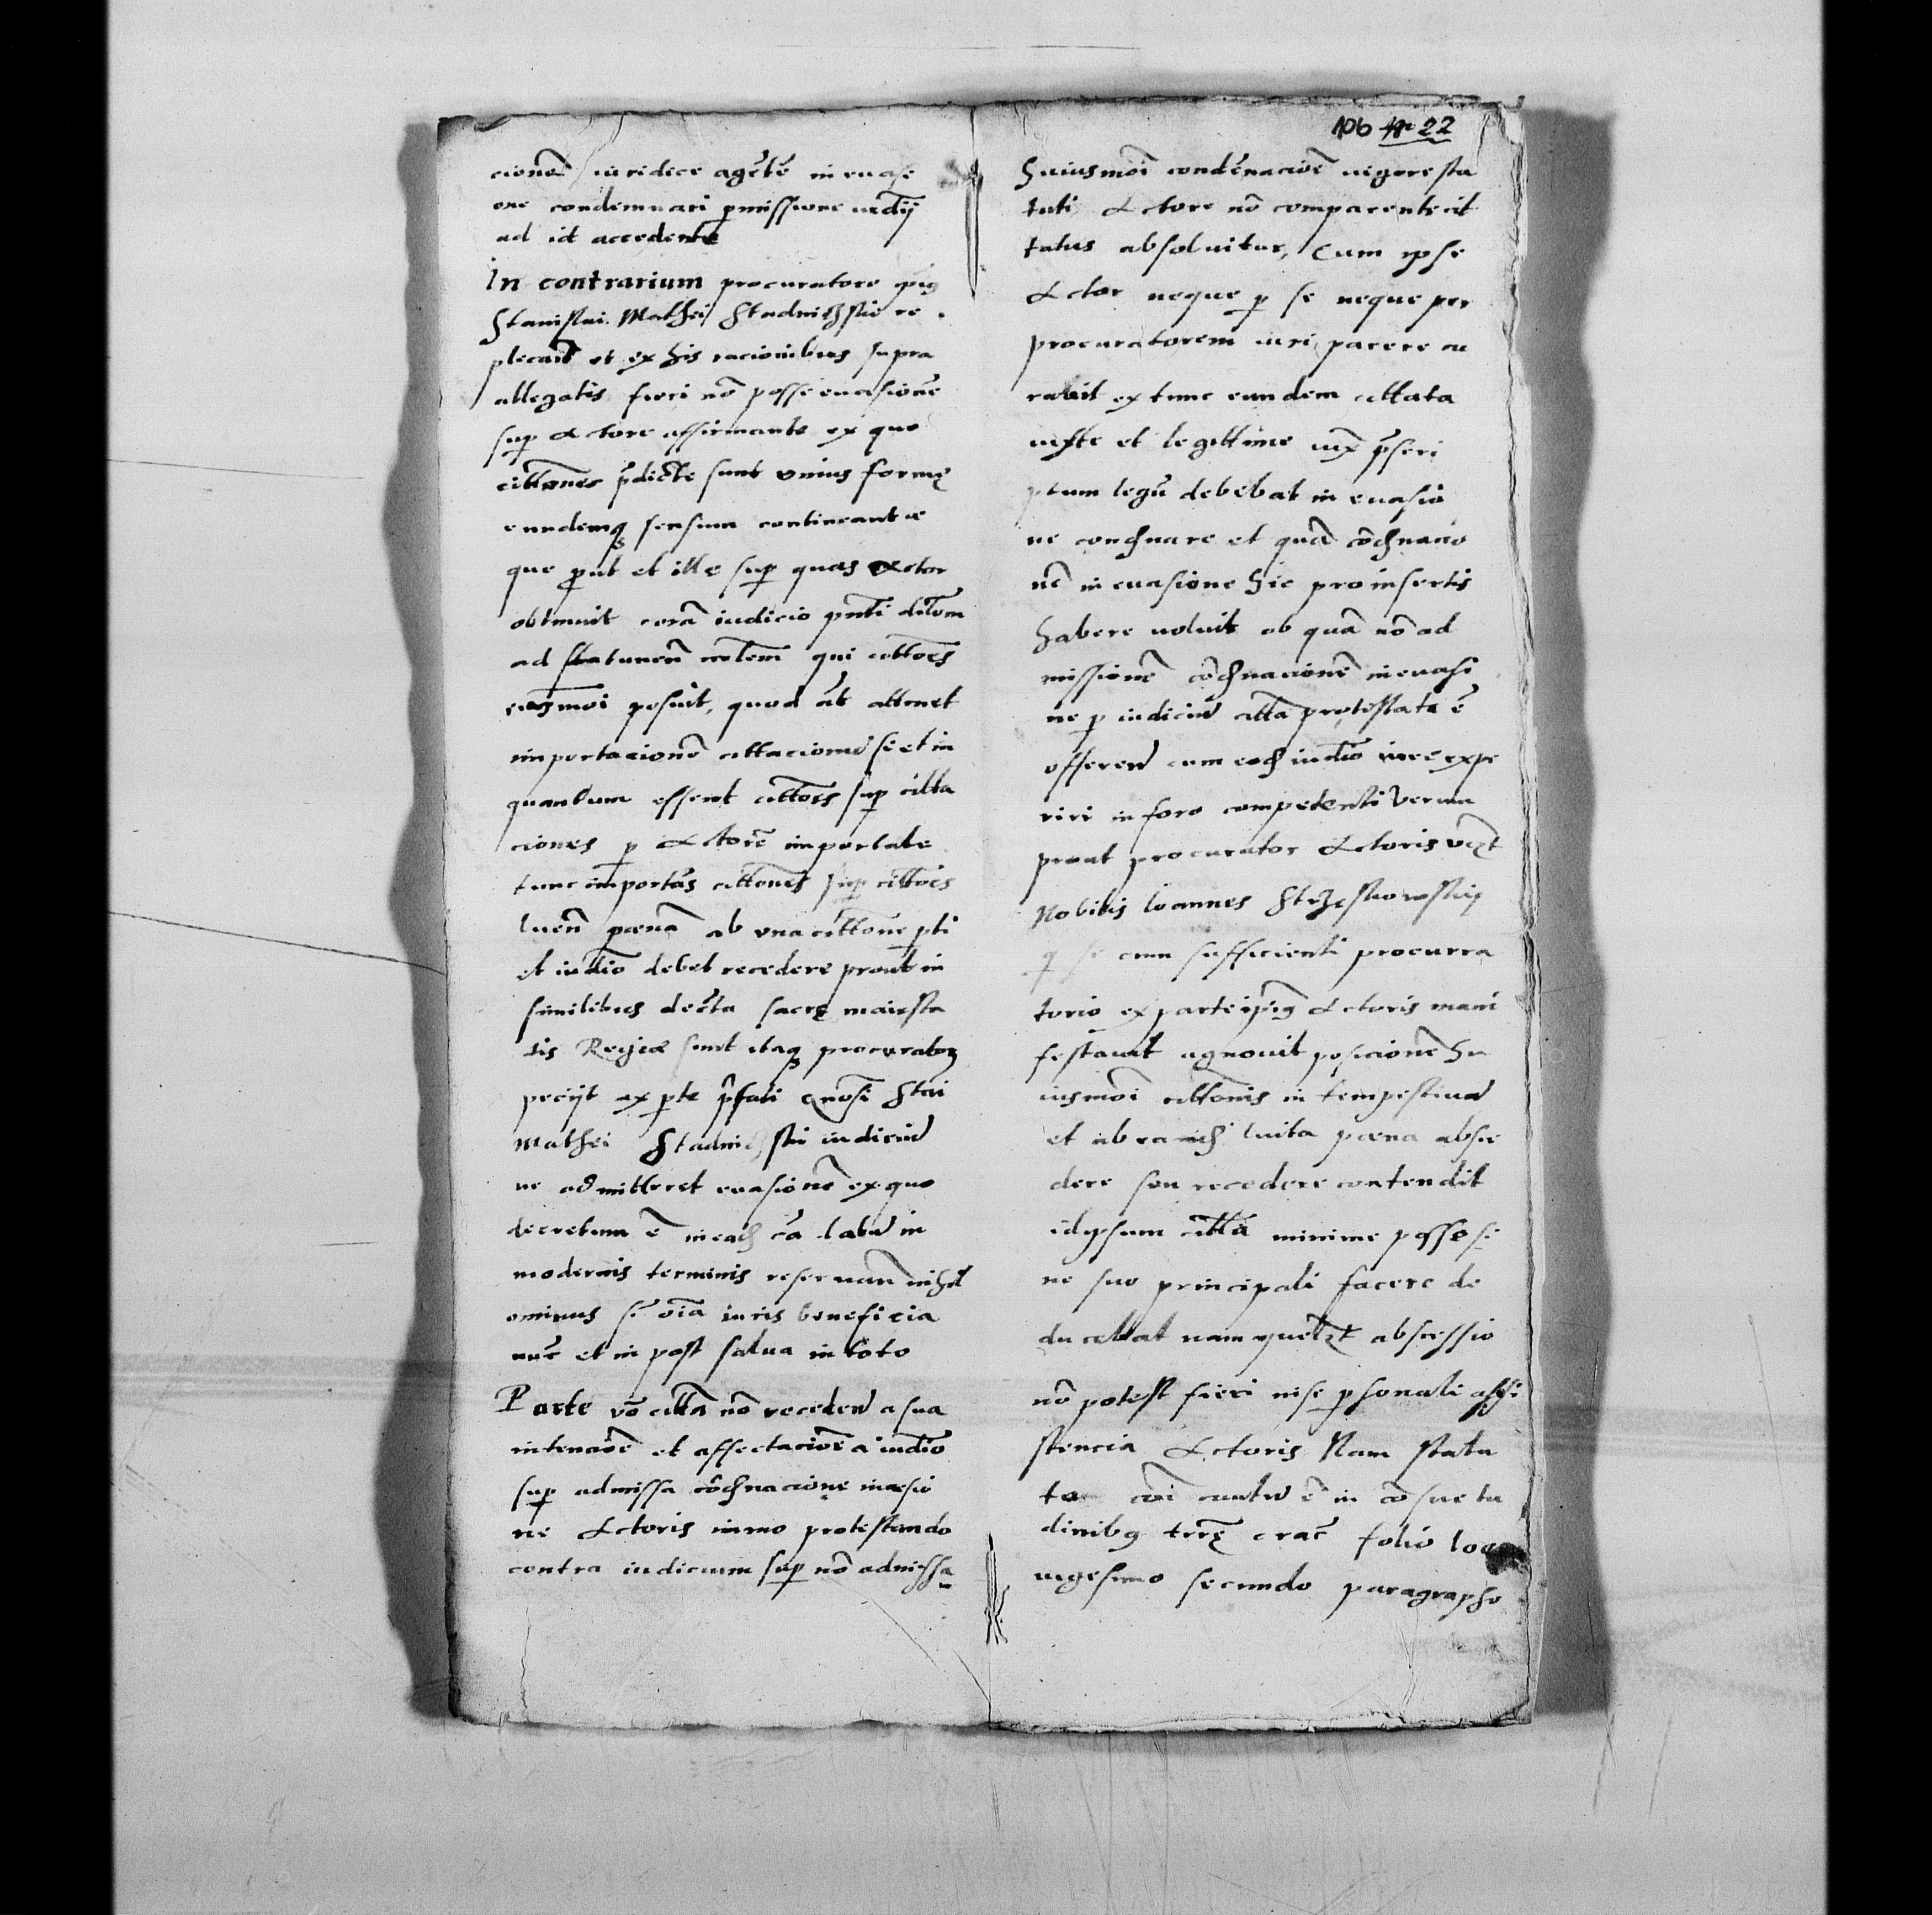 cionem iuridice agētē in euasi
one condemnari pmissione iudij
ad id accedente
In contrarium procuratore ipius
Stanislai Mathei Stadnichski re
plicauit et ex his racionibus supra
allegatis fieri nō posse euasionē
sup Actore affirmante ex quo
cittones pdicte sunt vnius forme
eundemq sensum contineant
que prout et ille sup quas Actor
obtinuit corā iudicio pnti
ad qui cittoes
eiusmoi posuit, quod at attinet
importacionē cittacionū si et in
quantum essent cittoes sup citta
ciones p Actorē importate
tunc importās cittones sup cittoes
luen penā ab vna cittone pti
et iudio debet recedere prout in
similibus decta sacre maiesta
tis Regiæ sunt itaq procurator
peciit ex pte pfati Gnosi Stai
Mathei Stadnichski iudiciū
ne admitteret euasionē ex quo
decretum ē in eadē cā latū in
modernis terminis reseruan nihil
ominus sī oīa iuris beneficia
nūc et in post salua in toto
Parte vō citta nō receden a sua
intencioē et affectacioē a iudio
sup admissa cōdnacione in euasio
ne Actoris immo protestando
contra iudicium sup nō admissa
106 22
huiusmoī condēnacioē uigore sta
tuti Actore nō comparente cit
tatus absoluitur, Cum ipse
Actor neque p se neque per
procuratorem iuri parere cu
rauit ex tunc eundem cittata
iuste et legittime iux pscri
ptum legū debebat in euasio
ne condnare et quā cōdnacio
nē in euasione hic pro insertis
habere uoluit ob quā nō ad
missionē cōdnacionē in euasi
ne p iudiciū citta protestata ē
offeren cum eod iudio iure expe
riri in foro competenti Verum
prout procurator Actoris vizt
Nobilis Ioannes
q se cum sufficienti procura
torio ex parte ipius Actoris mani
festauit agnouit posicionē hu
iusmoī cittonis in tempestiuā
et ab eadē luita pœna absce
dere seu recedere contendit
idipsum citta minime posse si
ne suo principali facere de
ducebat nam quelzt abscessio
nō potest fieri nisi psonali assi
stencia Actoris Nam statu
to cōi cautū ē in cōsuetu
dinibus trre crac folio
uigesimo secundo paragrapho